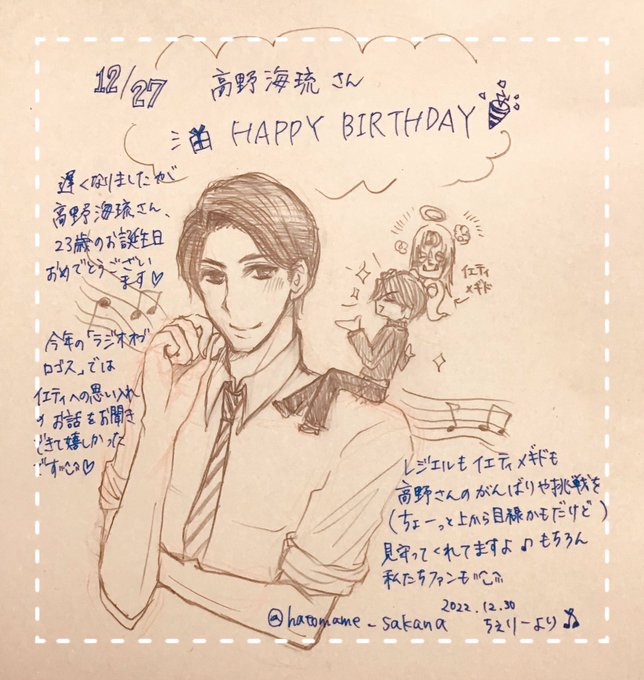 12/27 高野海琉さん
HAPPY BIRTHDAY
遅くなりましたが
高野海琉さん、
23歳のお誕生日
おめでとうござい
ます♡
イエティ
メギド
今年の「ラジオオブ
ロゴス」では
イエティへの思い入れ
の お話をお聞き
できて嬉しかった
です♡
レジエルも イエティメギドも
高野さんの がんばりや挑戦を
(ちょーっと上から目線かもだけど)
見守ってくれてますよ♪もちろん
私たちファンも
2022.12.30
@hatomame_sakana ちぇりーより